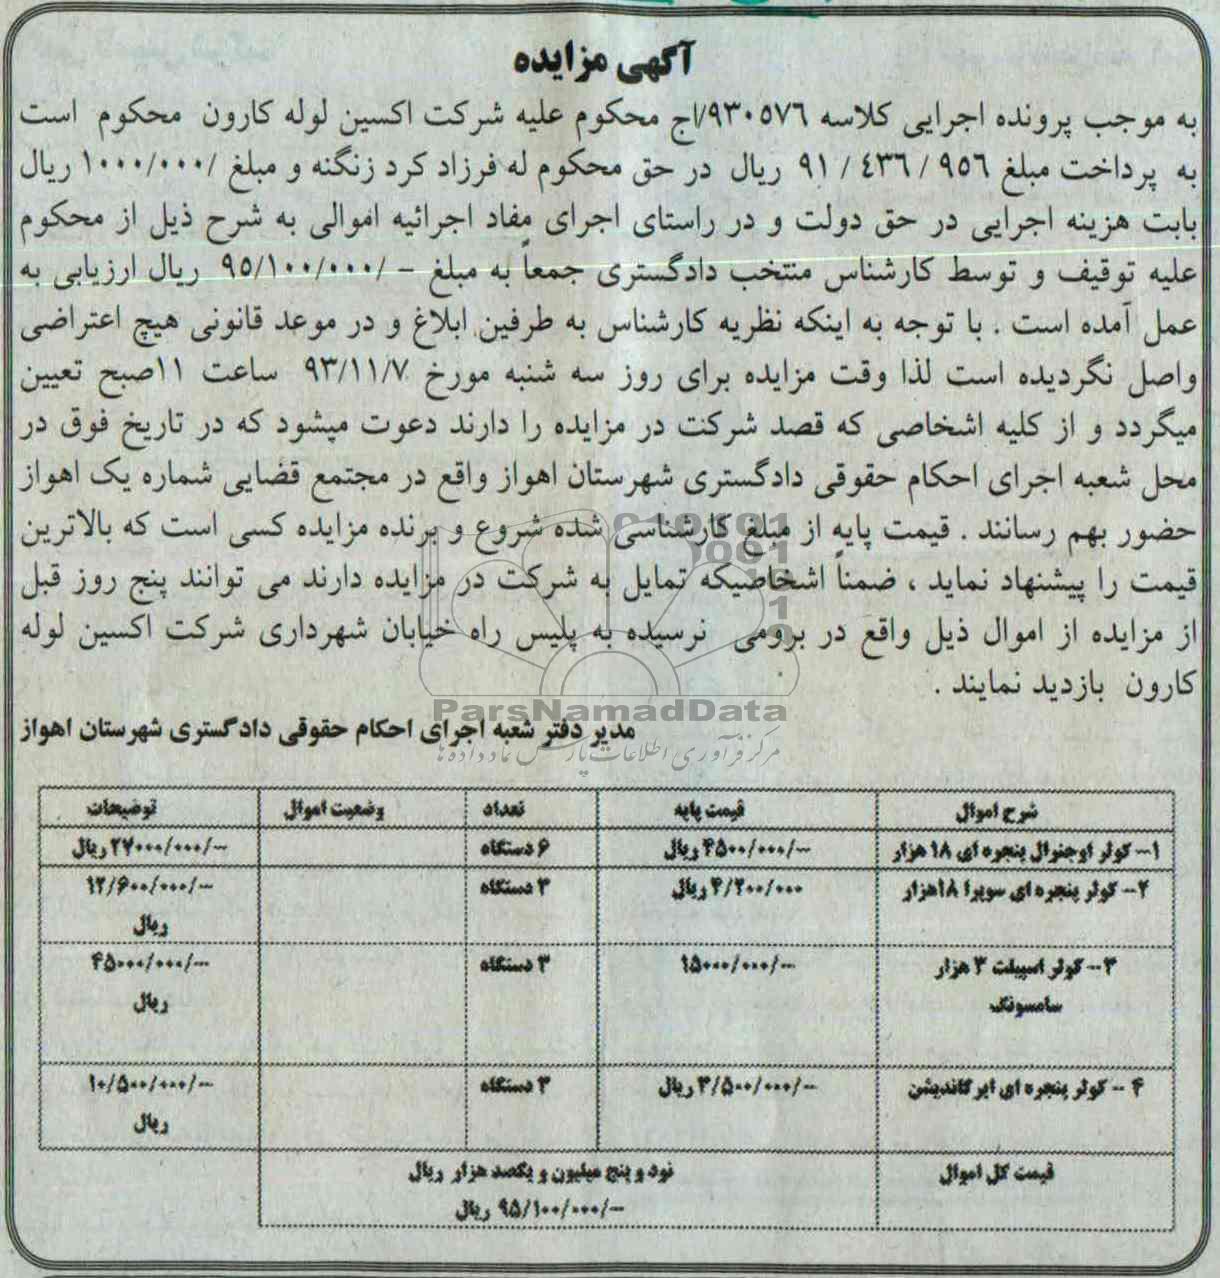 آگهی مزایده
به موجب پرونده اجرایی کلاسه ۹۳۰۵۷۶/اج محکوم علیه شرکت اکسین لوله کارون محکوم است
به پرداخت مبلغ ۹۵۶ / ۴۳۶ / ۹۱ ریال در حق محکوم له فرزاد کرد زنگنه و مبلغ /۱۰۰۰/۰۰۰ ریال
بابت هزینه اجرایی در حق دولت و در راستای اجرای مفاد اجرائیه اموالی به شرح ذیل از محکوم
علیه توقیف و توسط کارشناس منتخب دادگستری جمعاً به مبلغ -/۹۵/۱۰۰/۰۰۰ ریال ارزیابی به
عمل آمده است . با توجه به اینکه نظریه کارشناس به طرفین ابلاغ و در موعد قانونی هیچ اعتراضی
واصل نگردیده است لذا وقت مزایده برای روز سه شنبه مورخ ۹۳/۱۱/۷ ساعت ۱۱صبح تعیین
میگردد و از کلیه اشخاصی که قصد شرکت در مزایده را دارند دعوت میشود که در تاریخ فوق در
محل شعبه اجرای احکام حقوقی دادگستری شهرستان اهواز واقع در مجتمع قضایی شماره یک اهواز
حضور بهم رسانند . قیمت پایه از مبلغ کارشناسی شده شروع و برنده مزایده کسی است که بالاترین
قیمت را پیشنهاد نماید ، ضمناً اشخاصیکه تمایل به شرکت در مزایده دارند می توانند پنج روز قبل
از مزایده از اموال ذیل واقع در برومی نرسیده به پلیس راه خیابان شهرداری شرکت اکسین لوله
کارون بازدید نمایند .
ParsNamadData
مدیر دفتر شعبه اجرای احکام حقوقی دادگستری شهرستان اهواز
مرکز فرآوری اطلاعات پارس نماد داده ها
شرح اموال قیمت پایه تعداد وضعیت اموال توضیحات
۱- کولر اوجنرال پنجره ای ۱۸ هزار -/۴۵۰۰/۰۰۰ ریال ۶ دستگاه -/۲۷۰۰۰/۰۰۰ ریال
۲- کولر پنجره ای سوپرا ۱۸هزار ۴/۲۰۰/۰۰۰ ریال ۳ دستگاه -/۱۲/۶۰۰/۰۰۰
ریال
۳- کولر اسپیلت ۳ هزار -/۱۵۰۰۰/۰۰۰ ۳ دستگاه -/۴۵۰۰۰/۰۰۰
سامسونگ ریال
۴ - کولر پنجره ای ایرکاندیشن -/۳/۵۰۰/۰۰۰ ریال ۳ دستگاه -/۱۰/۵۰۰/۰۰۰
ریال
قیمت کل اموال نود و پنج میلیون و یکصد هزار ریال
-/۹۵/۱۰۰/۰۰۰ ریال